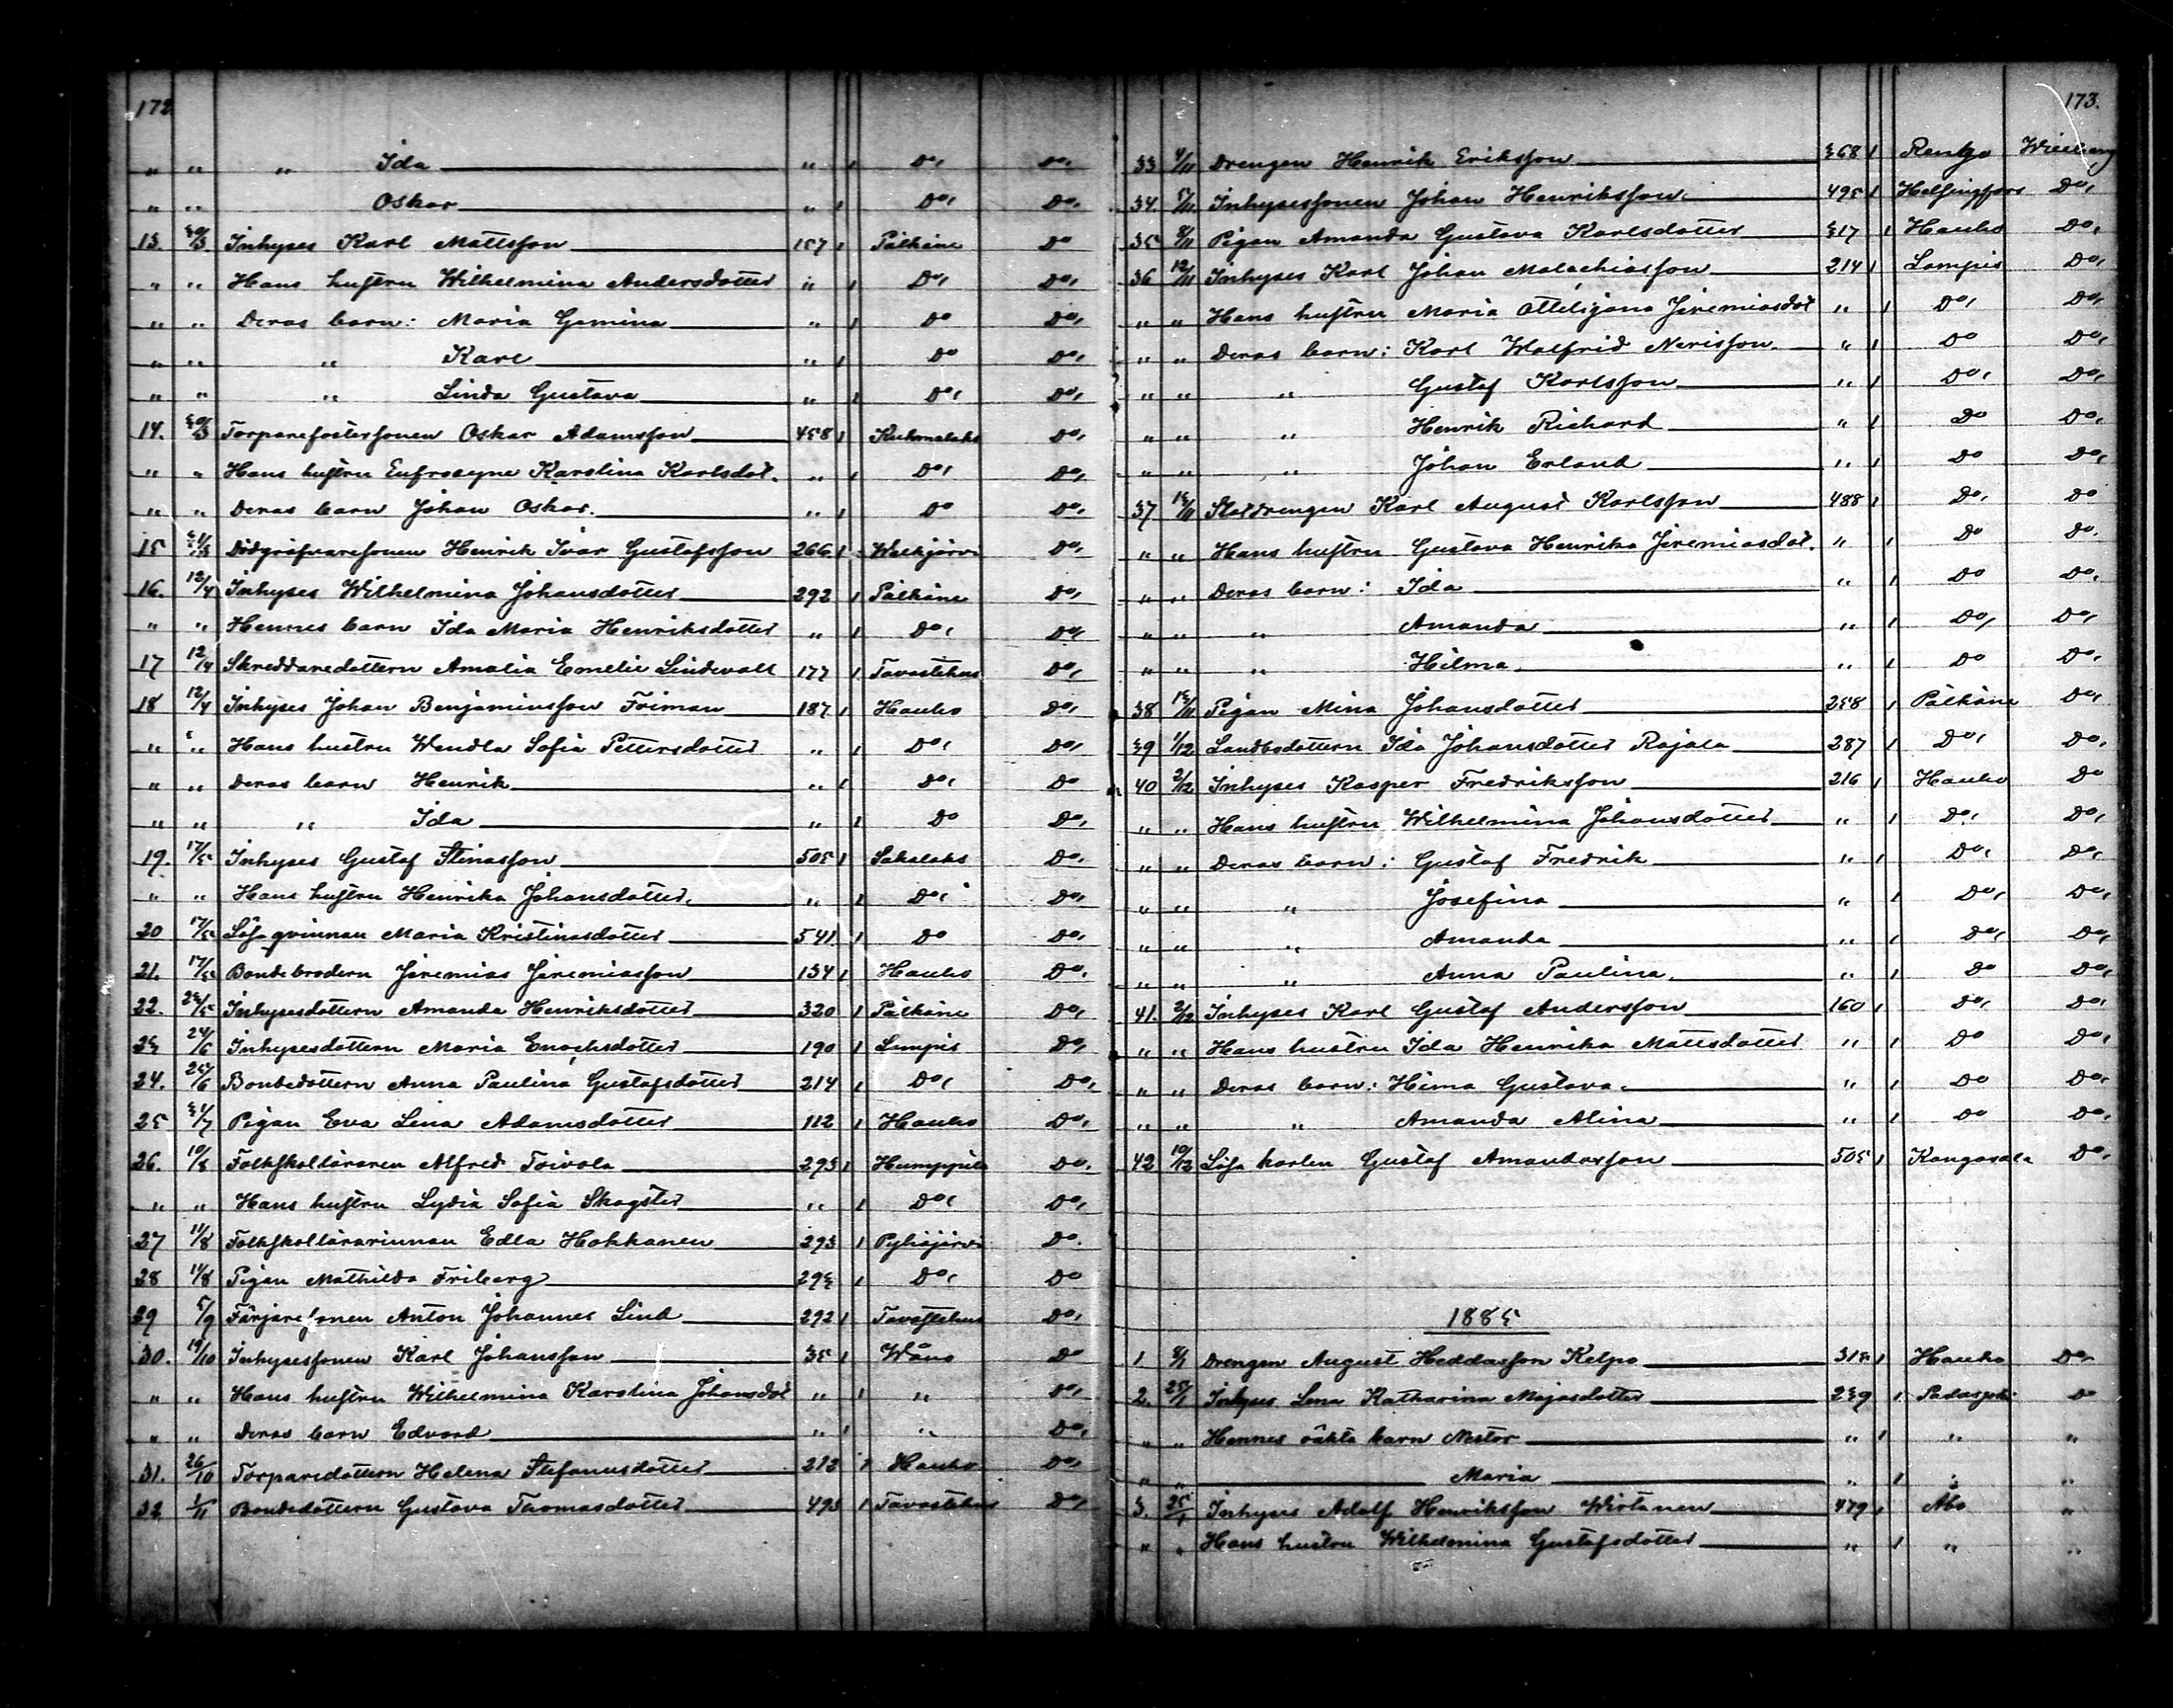 172.
„ „ „ Ida „ 1 Do, Do,
„ „ Oskar „ 1 Do, Do,
13. 30/3 Inhyses Karl Mattsson 157 1 Pälkäne Do
„ „ Hans hustru Wilhelmina Andersdotter „ 1 Do, Do,
„ „ Deras barn: Maria Gemina „ 1 Do Do,
„ „ „ Karl „ 1 Do Do,
„ „ „ Linda Gustava „ 1 Do, Do,
14. 30/3 Torparefostersonen Oskar Adamsson 458 1 Kuhmalaks Do,
„ „ Hans hustru Eufrosyne Karolina Karlsdot. „ 1 Do, Do,
„ „ Deras barn Johan Oskar. „ 1 Do Do,
15 31/3 Dödgräfvaresonen Henrik Ivar Gustafsson 266 1 Walkjärvi Do,
16. 12/4 Inhyses Wilhelmina Johansdotter 292 1 Pälkäne Do,
„ „ Hennes barn Ida Maria Henriksdotter „ 1 Do, Do,
17 12/4 Skreddaredottern Amalia Emelie Lindevall 177 1 Tavastehus Do,
18 12/4 Inhyses Johan Benjaminsson Friman 187 1 Hauho Do,
„ „ Hans hustru Wendla Sofia Pettersdotter „ 1 Do, Do,
„ „ Deras barn Henrik „ 1 Do, Do
„ „ „ Ida „ 1 Do Do,
19. 17/5 Inhyses Gustaf Stinasson 505 1 Sahalaks Do,
„ „ Hans hustru Henrika Johansdotter, „ 1 Do, Do,
20 17/5 Lösa qvinnan Maria Kristinasdotter 541 1 Do Do,
21. 17/5 Bondebrodern Jeremias Jeremiasson 134 1 Hauho Do.
22. 23/5 Inhysesdottern Amanda Henriksdotter 320 1 Pälkäne Do,
23 24/6 Inhysesdottern Maria Enochsdotter 190 1 Lampis Do,
24. 25/6 Bondedottern Anna Paulina Gustafsdotter 214 1 Do, Do,
25 31/7 Pigan Eva Lena Adamsdotter 112 1 Hauho Do,
26. 10/8 Folkskolläraren Alfred Toivola 293 1 Humppila Do.
„ „ Hans hustru Lydia Sofia Skogster „ 1 Do, Do,
27 11/8 Folkskollärarinnan Edla Hokkanen 293 1 Pyhäjärvi Do.
28 11/8 Pigan Mathilda Friberg 293 1 Do, Do
29 5/9 Färjaresonen Anton Johannes Lind 292 1 Tavastehus Do,
30. 19/10 Inhysessonen Karl Johansson 35 1 Wånå Do
„ „ Hans hustru Wilhelmina Karolina Johansdot „ 1 „ Do,
„ „ Deras barn Edvard „ 1 „ Do,
31. 26/10 Torparedottern Helena Stefanusdotter 212 1 Hauho Do,
32 1/11 Bondedottern Gustava Thomasdotter 493 1 Tavastehus Do,
173.
33 4/11 Drengen Henrik Eriksson 368 1 Renko Wiburg
34. 5/11 Inhysessonen Johan Henriksson. 495 1 Helsingfors Do,
35 8/11 Pigan Amanda Gustava Karlsdotter 317 1 Hauho Do,
36 12/11 Inhyses Karl Johan Malachiasson 214 1 Lampis Do,
„ „ Hans hustru Maria Otteljana Jeremiasdot „ 1 Do, Do,
„ „ Deras barn: Karl Walfrid Nerisson. „ 1 Do Do,
„ „ „ Gustaf Karlsson „ 1 Do, Do,
„ „ „ Henrik Richard „ 1 Do Do,
„ „ „ Johan Erland „ 1 Do Do,
37 15/11 Statdrengen Karl August Karlsson 488 1 Do, Do
„ „ Hans hustru Gustava Henrika Jeremiasdot. „ 1 Do Do.
„ „ Deras barn: Ida „ 1 Do Do.
„ „ „ Amanda „ 1 Do, Do,
„ „ „ Hilma „ 1 Do Do,
38 15/11 Pigan Mina Johansdotter 258 1 Pälkäne Do,
39 1/12 Landbodottern Ida Johansdotter Rajala 287 1 Do, Do,
40 2/12 Inhyses Kasper Fredriksson 216 1 Hauho Do
„ „ Hans hustru Wilhelmina Johansdotter „ 1 Do, Do,
„ „ Deras barn: Gustaf Fredrik „ 1 Do, Do,
„ „ „ Josefina „ 1 Do, Do,
„ „ „ Amanda „ 1 Do, Do,
„ „ „ Anna Paulina. „ 1 Do Do,
41. 2/12 Inhyses Karl Gustaf Andersson 160 1 Do, Do,
„ „ Hans hustru Ida Henrika Mattsdotter „ 1 Do Do,
„ „ Deras barn: Hima Gustava. „ 1 Do Do,
„ „ „ Amanda Alina „ 1 Do Do,
42 10/12 Lösa karlen Gustaf Amandasson 505 1 Kangasala Do,
1885
1 8/1 Drengen August Heddasson Kelpo 318 1 Hauho Do
2. 25/1 Inhyses Lena Katharina Majasdotter 239 1 Padasjoki Do
„ „ Hennes oäkta barn Nestor „ 1 „ „
„ „ Maria „ 1 „ „
3. 25/1 Inhyses Adolf Henriksson Wirtanen 479 1 Åbo „
„ „ Hans hustru Wilhelmina Gustafsdotter „ 1 „ „